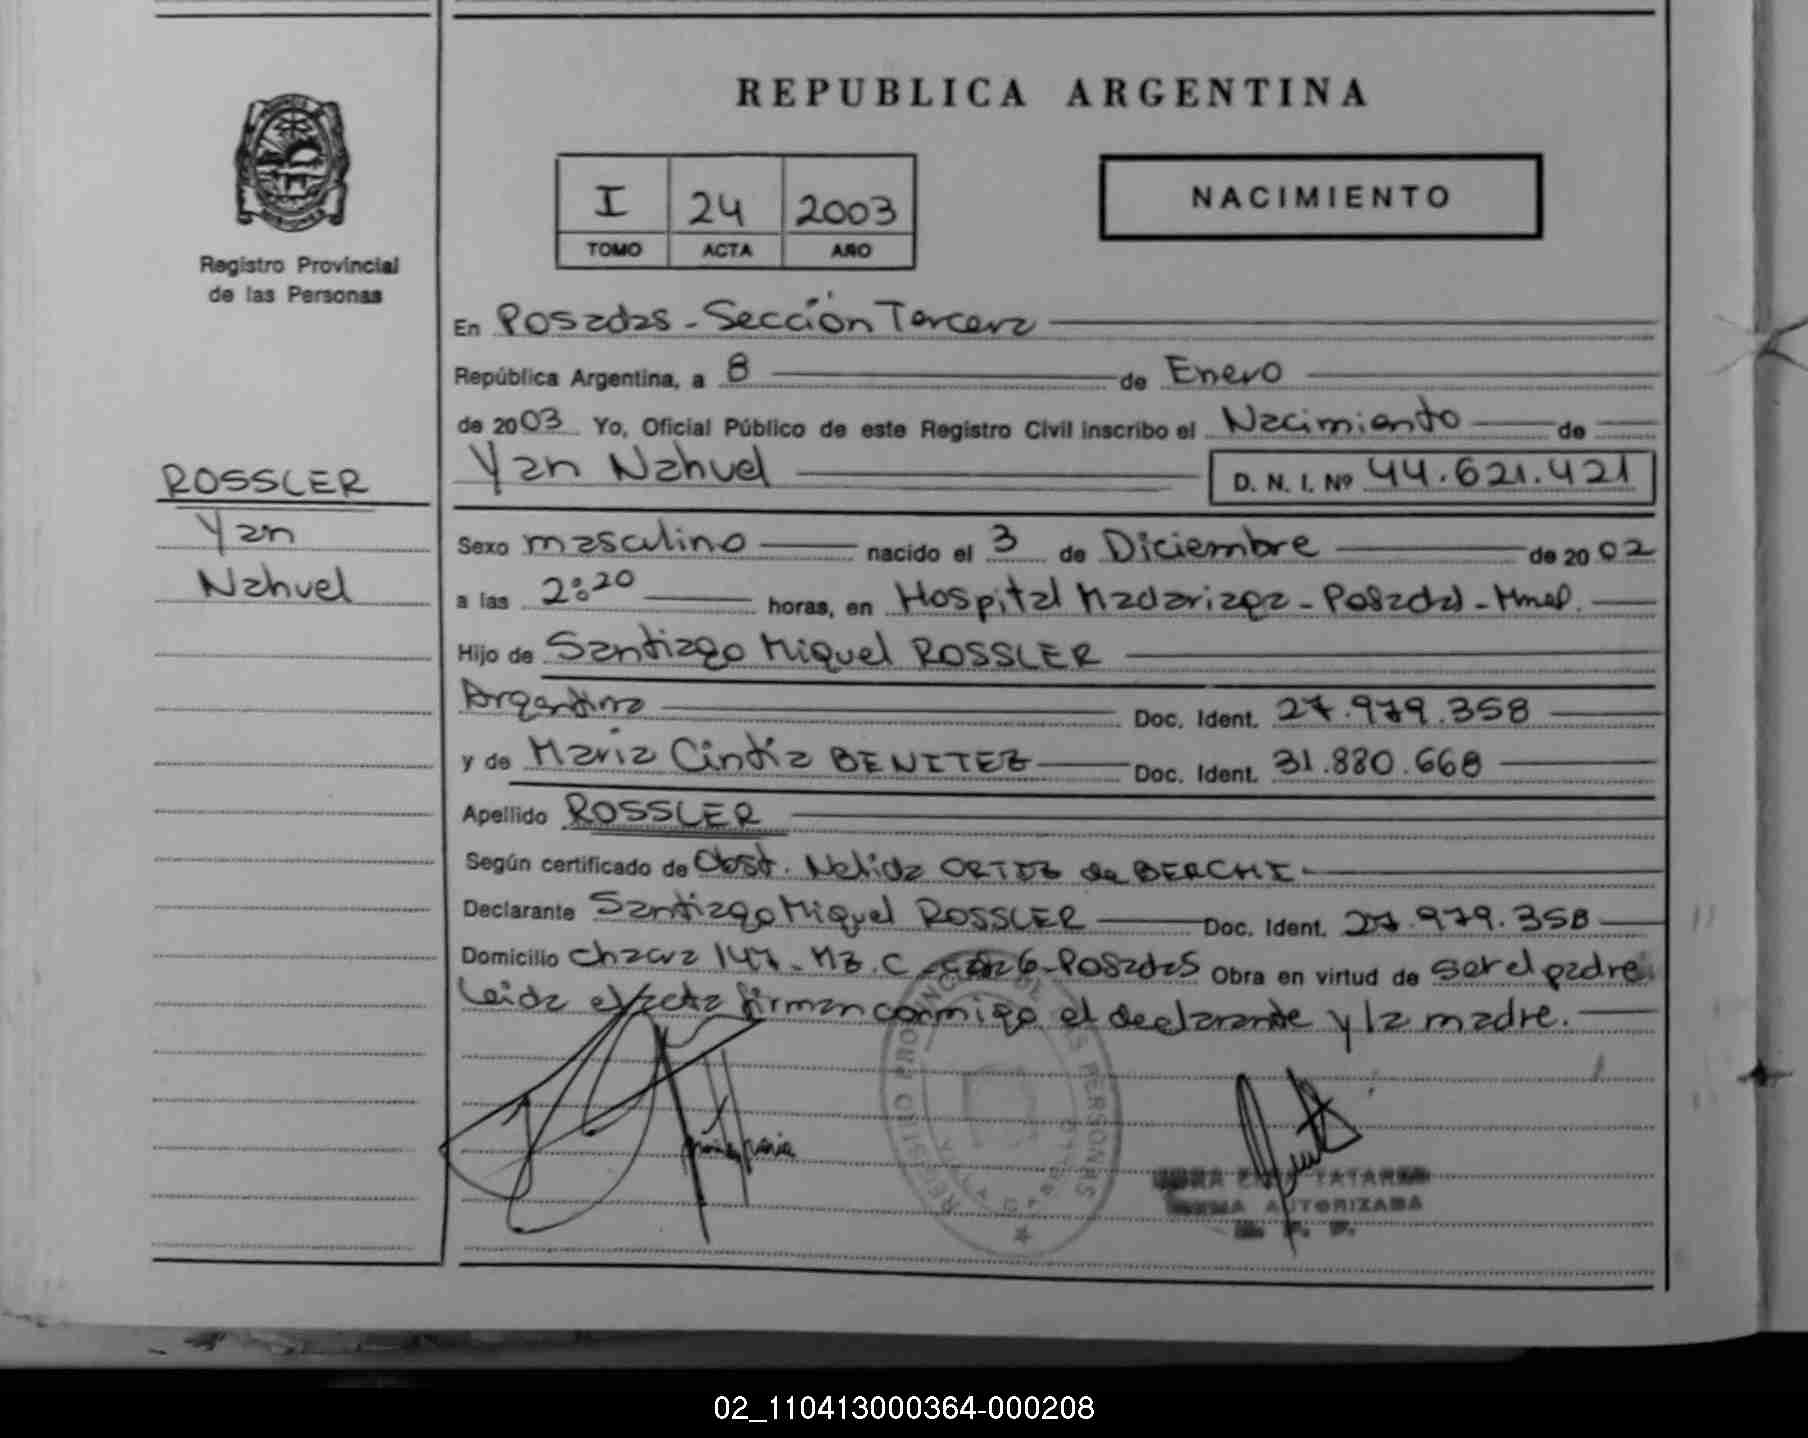 REPUBLICA ARGENTINA
I 24 2003
TOMO ACTA AÑO
NACIMIENTO
Registro Provincial
de las Personas
ROSSLER
Yan
Nahuel
En Posadas - Sección Tercera
República Argentina, a 8 de Enero
de 2003 Yo, Oficial Público de este Registro Civil inscribo el Nacimiento de
Yan Nahuel D. N. I. Nº 44.621.421
Sexo masculino nacido el 3 de Diciembre de 2002
a las 2:20 horas, en Hospital Madariaga - Posadas - Mnes.
Hijo de Santiago Miguel ROSSLER
Argentino Doc. Ident. 27.979.358
y de Maria Cintia BENITEZ Doc. Ident. 31.880.668
Apellido ROSSLER
Según certificado de Obst. Nelida ORTIZ de BERCHI
Declarante Santiago Miguel ROSSLER Doc. Ident. 27.979.358
Domicilio Chacra 147 - Mz. C - 6 - Posadas Obra en virtud de ser el padre.
Leida el acta firman conmigo el declarante y la madre.
REGISTRO PROVINCIAL DE LAS PERSONAS
TATAREN
FIRMA AUTORIZADA
R. P. P.
02_110413000364-000208